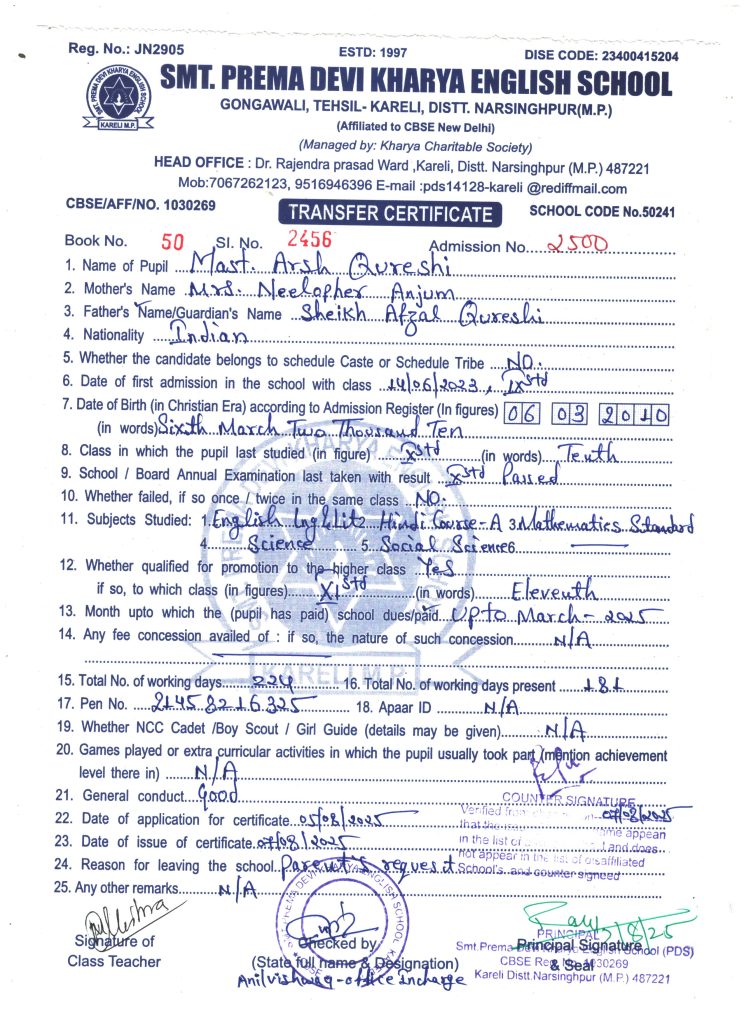 Reg. No.: JN2905 ESTD: 1997 DISE CODE: 23400415204
SMT. PREMA DEVI KHARYA ENGLISH SCHOOL
GONGAWALI, TEHSIL- KARELI, DISTT. NARSINGHPUR(M.P.)
(Affiliated to CBSE New Delhi)
(Managed by: Kharya Charitable Society)
HEAD OFFICE : Dr. Rajendra prasad Ward ,Kareli, Distt. Narsinghpur (M.P.) 487221
Mob:7067262123, 9516946396 E-mail :pds14128-kareli @rediffmail.com
CBSE/AFF/NO. 1030269 TRANSFER CERTIFICATE SCHOOL CODE No.50241
Book No. 50 Sl. No. 2456 Admission No. 2500
1. Name of Pupil Mast. Arsh Qureshi
2. Mother's Name Mrs. Neelopher Anjum
3. Father's Name/Guardian's Name Sheikh Afzal Qureshi
4. Nationality Indian
5. Whether the candidate belongs to schedule Caste or Schedule Tribe NO.
6. Date of first admission in the school with class 14/06/2023, IXStd
7. Date of Birth (in Christian Era) according to Admission Register (In figures) 06 03 2010
(in words) Sixth March Two Thousand Ten
8. Class in which the pupil last studied (in figure) XStd (in words) Tenth
9. School / Board Annual Examination last taken with result XStd Passed
10. Whether failed, if so once / twice in the same class NO.
11. Subjects Studied: 1. English Lng & Lit 2 Hindi Course-A 3 Mathematics Standard
4 Science 5 Social Science 6
12. Whether qualified for promotion to the higher class Yes
if so, to which class (in figures) XIStd (in words) Eleventh
13. Month upto which the (pupil has paid) school dues/paid Upto March-2025
14. Any fee concession availed of : if so, the nature of such concession N/A
15. Total No. of working days 224 16. Total No. of working days present 181
17. Pen No. 21458216325 18. Apaar ID N/A
19. Whether NCC Cadet /Boy Scout / Girl Guide (details may be given) N/A
20. Games played or extra curricular activities in which the pupil usually took part (mention achievement
level there in) N/A
21. General conduct Good
COUNTER SIGNATURE
22. Date of application for certificate 05/08/2025
Verified from 07/08/2025
that the me appear
23. Date of issue of certificate 07/08/2025
in the list of and does
not appear in the list of disaffiliated
24. Reason for leaving the school Parent's request
School's and counter signed
25. Any other remarks N/A
SMT. PREMA DEVI KHARYA ENGLISH SCHOOL, KARELI
Signature of
Class Teacher
Checked by
(State full name & Designation)
Anil vishwa - office Incharge
7/8/25
PRINCIPAL
Principal Signature
& Seal
Smt.Prema Devi Kharya English School (PDS)
CBSE Reg No. 1030269
Kareli Distt.Narsinghpur (M.P.) 487221
KARELI M.P.